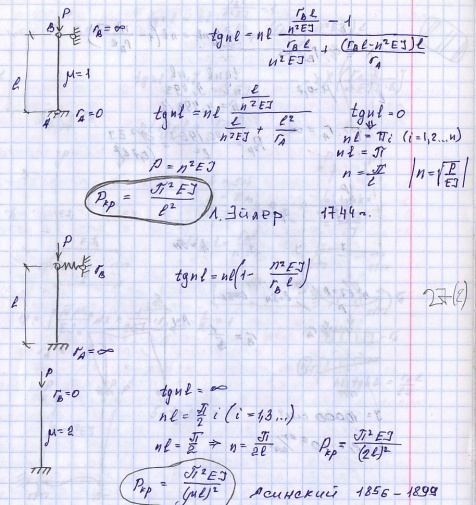 P
B r_B = ∞
l μ = 1
A r_A = 0
tg nl = nl (r_B l / n²EJ − 1) / (r_B l / n²EJ + (r_B l − n²EJ) l / r_A)
tg nl = nl (l / n²EJ) / (l / n²EJ + l² / r_A)
tg nl = 0
nl = πi (i = 1, 2 ... n)
nl = π
n = π / l | n = √(P / EJ) |
P = n²EJ
P_кр = π²EJ / l²
Л. Эйлер 1744 г.
P
r_B
l
r_A = ∞
tg nl = nl (1 − n²EJ / r_B l)
27-(2)
P
r_B = 0
μ = 2
tg nl = ∞
nl = π/2 i (i = 1,3,...)
nl = π/2 ⇒ n = π / 2l P_кр = π²EJ / (2l)²
P_кр = π²EJ / (μl)² Ясинский 1856 – 1899